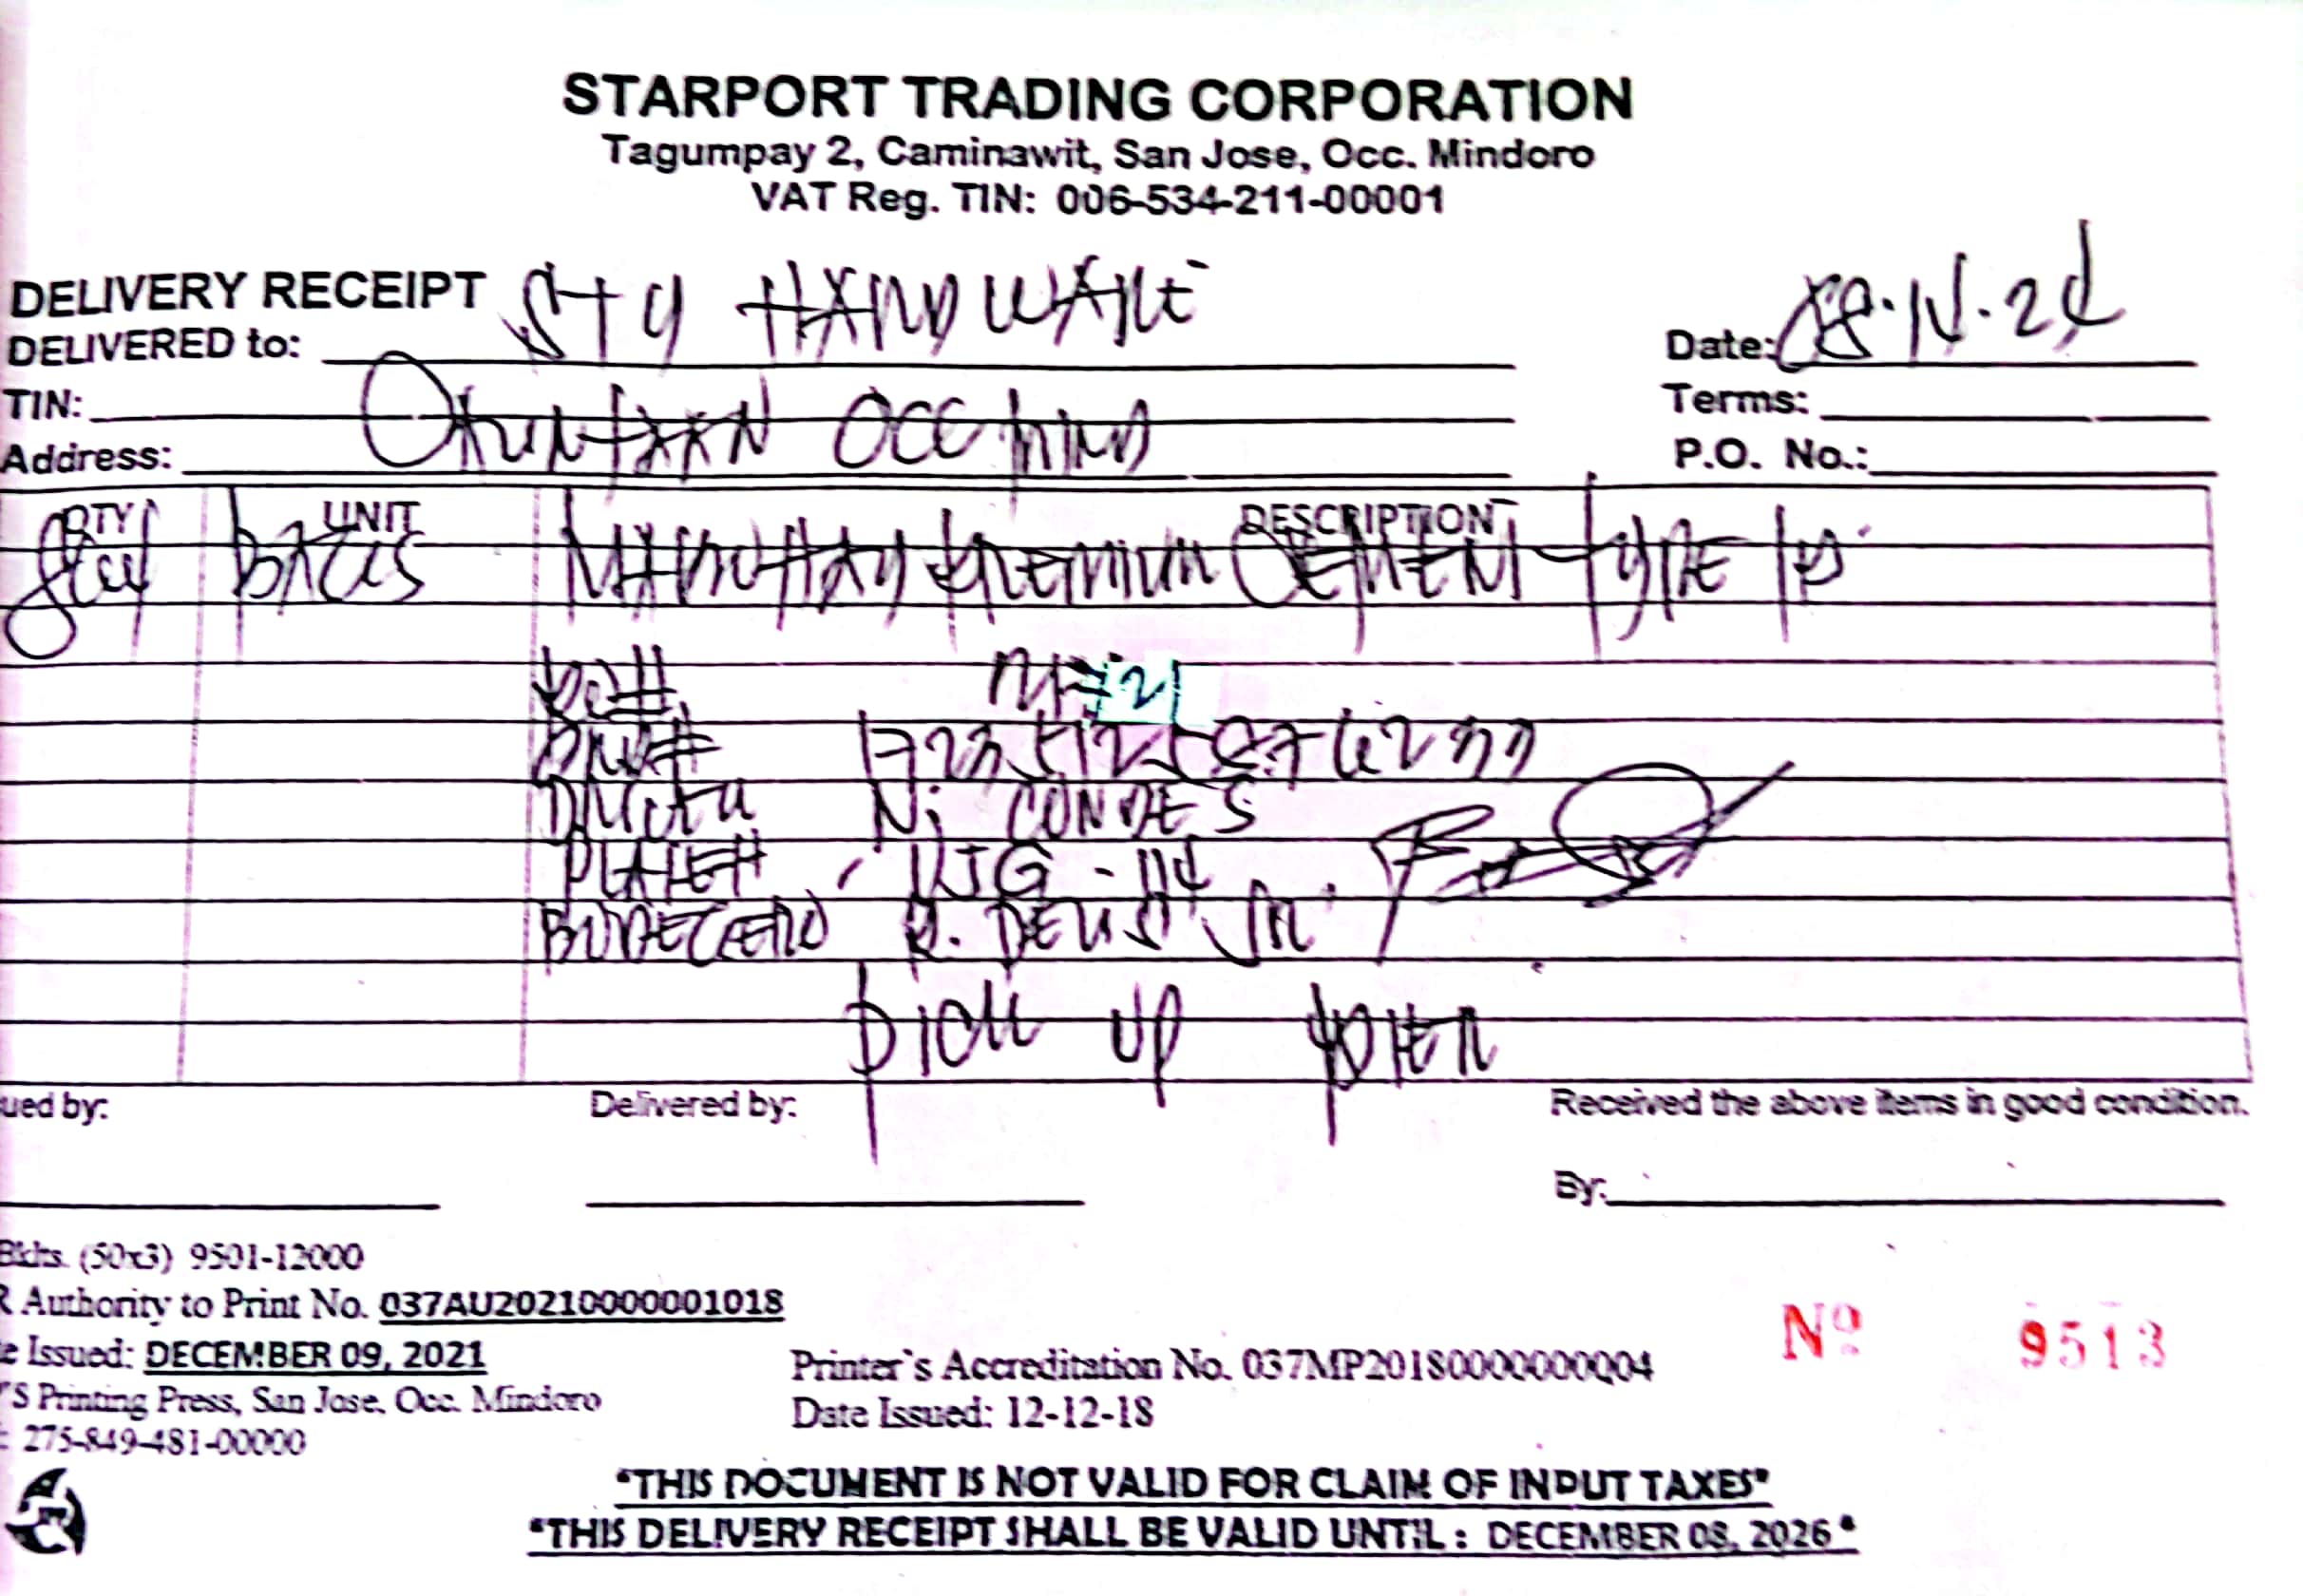 STARPORT TRADING CORPORATION
Tagumpay 2, Caminawit, San Jose, Occ. Mindoro
VAT Reg. TIN: 006-534-211-00001
DELIVERY RECEIPT
DELIVERED to: STY HARDWARE
Date: 08.14.24
TIN:
Terms:
Address: OCC MIND
P.O. No.:
QTY UNIT DESCRIPTION
BAGS PREMIUM CEMENT TYPE 1P
N. CONDES
PLATE#
BODEGERO R. JR
PICK UP
ued by:
Delivered by:
Received the above items in good condition.
By:
Bklts. (50x3) 9501-12000
R Authority to Print No. 037AU20210000001018
e Issued: DECEMBER 09, 2021
'S Printing Press, San Jose, Occ. Mindoro
: 275-849-481-00000
Printer's Accreditation No. 037MP20180000000004
Date Issued: 12-12-18
Nº 9513
"THIS DOCUMENT IS NOT VALID FOR CLAIM OF INPUT TAXES"
"THIS DELIVERY RECEIPT SHALL BE VALID UNTIL : DECEMBER 08, 2026"